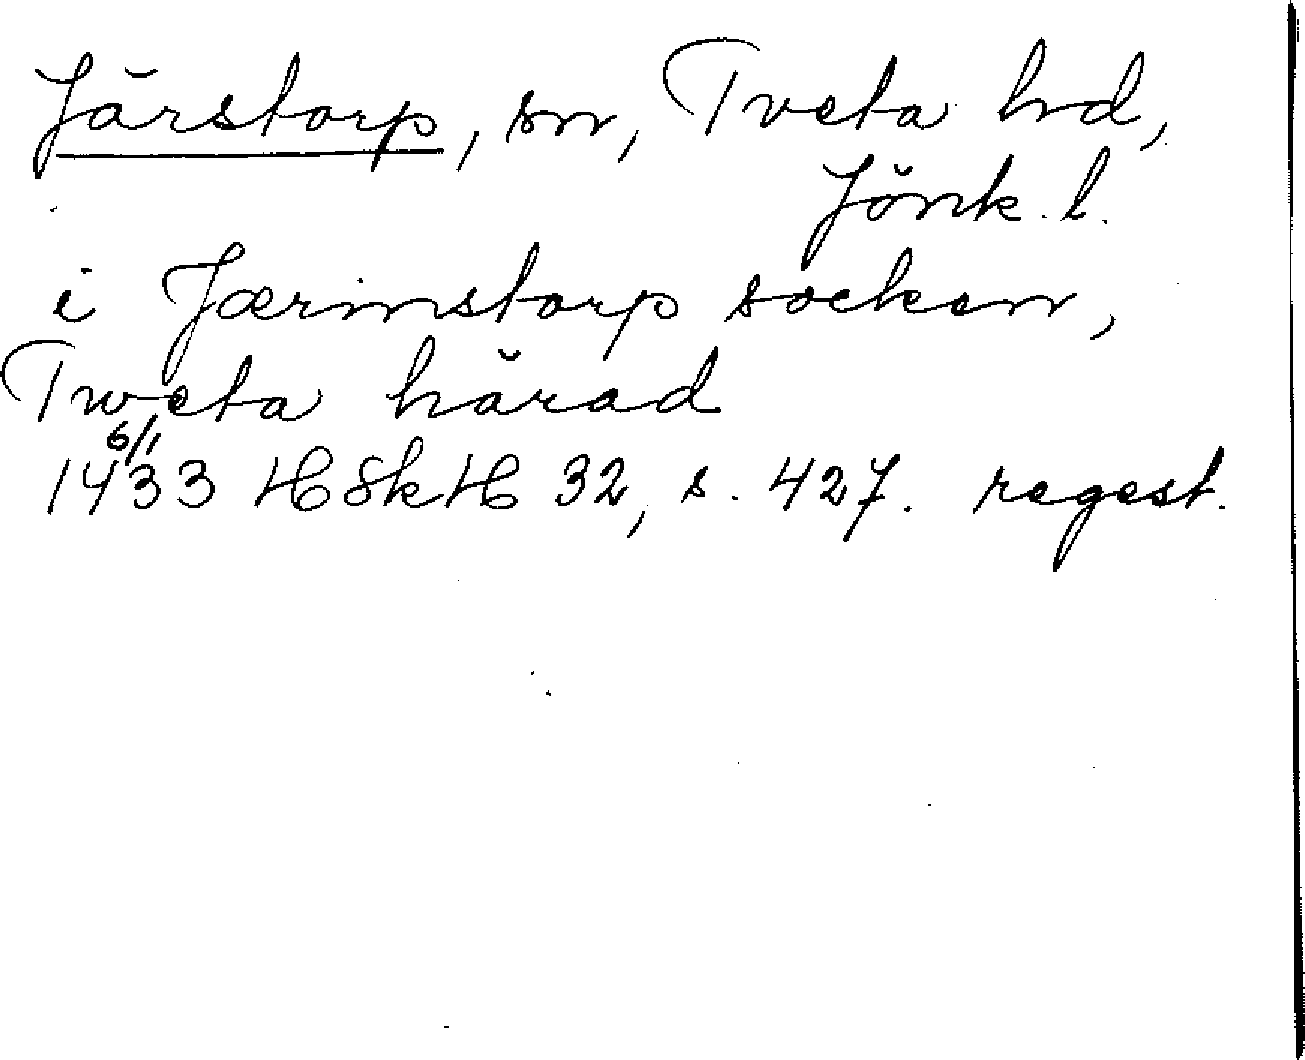 Järstorp, sn, Tveta hd,
Jönk. l.
i Jærinstorp socken,
Tweta härad
6/1
1433 HSkH 32, s. 427. regest.